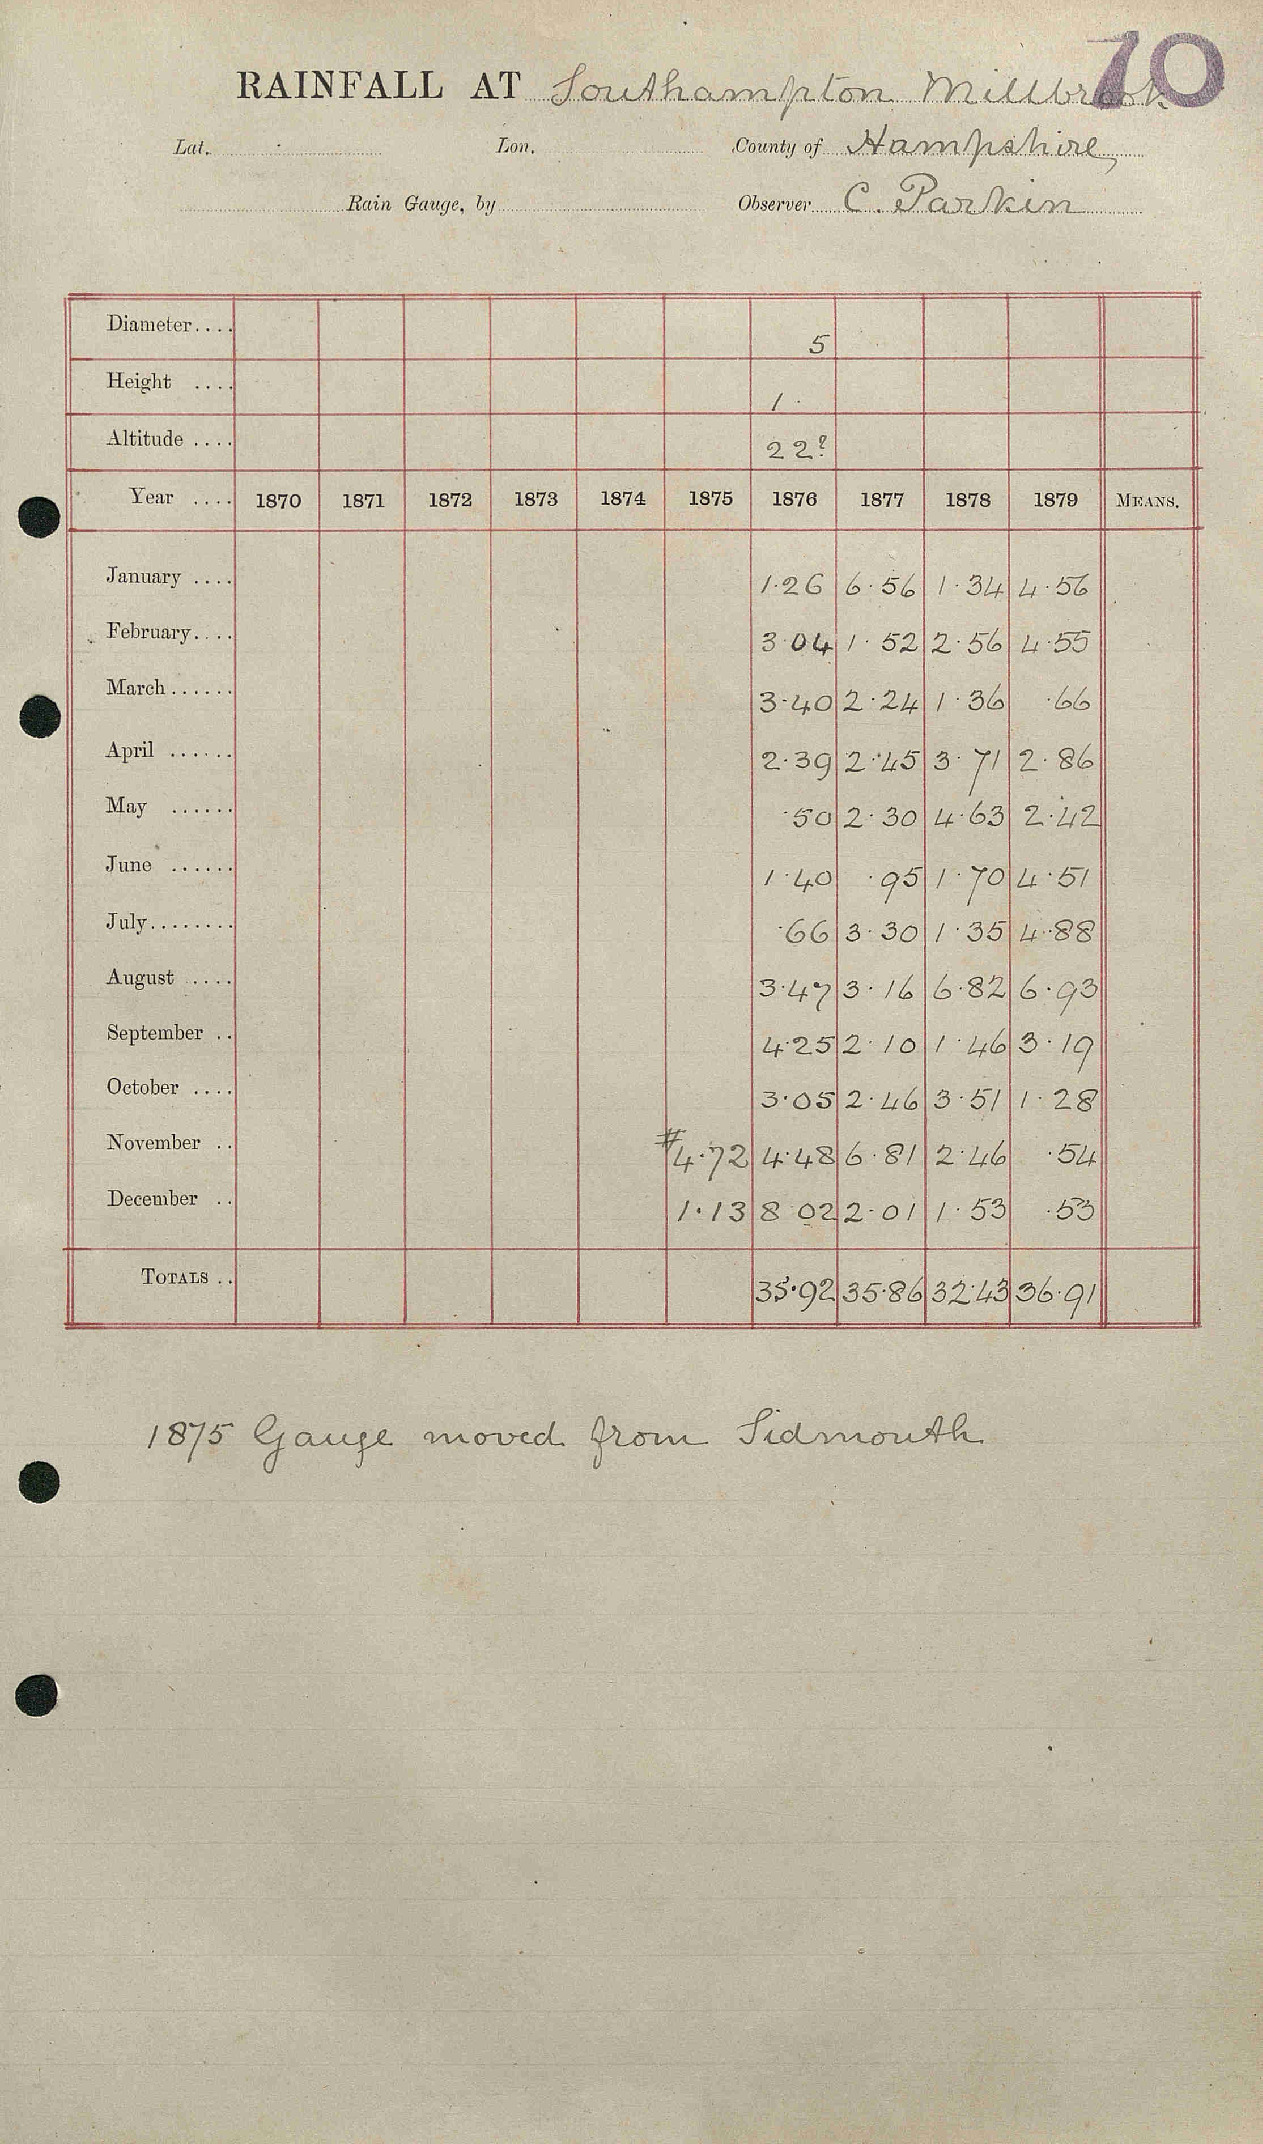 70
RAINFALL AT Southampton Millbrook
Lat. Lon. County of Hampshire,
Rain Gauge, by Observer C. Parkin
Diameter.... 5
Height .... 1 ·
Altitude .... 22?
Year .... 1870 1871 1872 1873 1874 1875 1876 1877 1878 1879 MEANS.
January .... 1·26 6·56 1·34 4·56
February.... 3·04 1·52 2·56 4·55
March...... 3·40 2·24 1·36 ·66
April ...... 2·39 2·45 3·71 2·86
May ...... ·50 2·30 4·63 2·42
June ...... 1·40 ·95 1·70 4·51
July........ ·66 3·30 1·35 4·88
August .... 3·47 3·16 6·82 6·93
September .. 4·25 2·10 1·46 3·19
October .... 3·05 2·46 3·51 1·28
November .. #4·72 4·48 6·81 2·46 ·54
December .. 1·13 8·02 2·01 1·53 ·53
TOTALS .. 35·92 35·86 32·43 36·91
1875 Gauge moved from Sidmouth